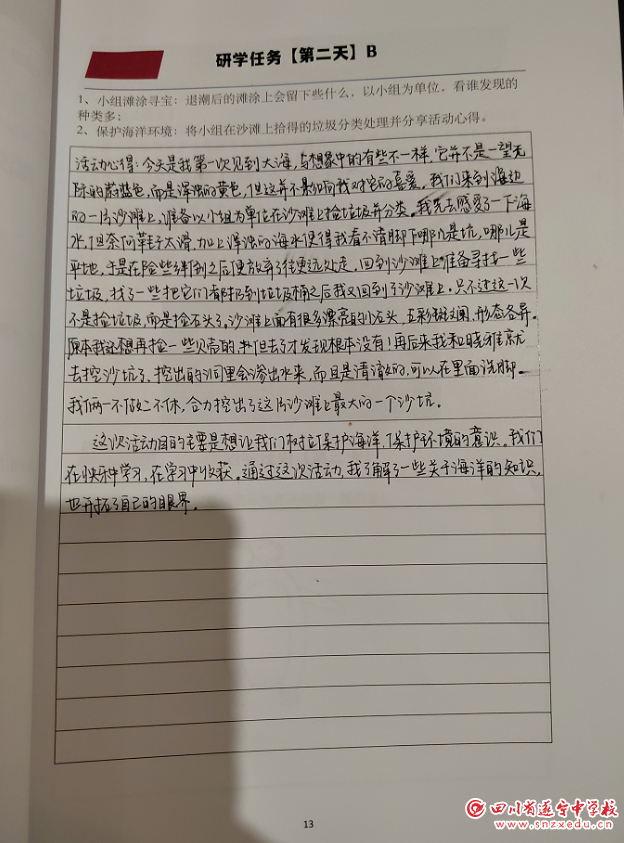 研学任务【第二天】B
1、小组滩涂寻宝：退潮后的滩涂上会留下些什么，以小组为单位，看谁发现的
种类多；
2、保护海洋环境：将小组在沙滩上拾得的垃圾分类处理并分享活动心得。
活动心得：今天是我第一次见到大海，与想象中的有些不一样，它并不是一望无
际的蔚蓝色，而是浑浊的黄色，但这并不影响我对它的喜爱。我们来到海边
的一片沙滩上，准备以小组为单位在沙滩上捡垃圾并分类。我先去感受了一下海
水，但奈何鞋子太滑，加上浑浊的海水使得我看不清脚下哪儿是坑，哪儿是
平地，于是在险些绊倒之后便放弃了往更远处走，回到沙滩上准备寻找一些
垃圾，找了一些把它们有序扔到垃圾桶之后我又回到了沙滩上。只不过这一次
不是捡垃圾，而是捡石头了，沙滩上面有很多漂亮的小石头，五彩斑斓，形态各异。
原本我还想再捡一些贝壳的，但去了才发现根本没有！再后来我和晓雅就
去挖沙坑了，挖出的洞里会渗出水来，而且是清澈的，可以在里面洗脚。
我俩一不做二不休，合力挖出了这片沙滩上最大的一个沙坑。
这次活动目的主要是想让我们树立保护海洋，保护环境的意识。我们
在快乐中学习，在学习中收获。通过这次活动，我了解了一些关于海洋的知识，
也开拓了自己的眼界。
13
四川省遂宁中学校
www.snzxedu.cn